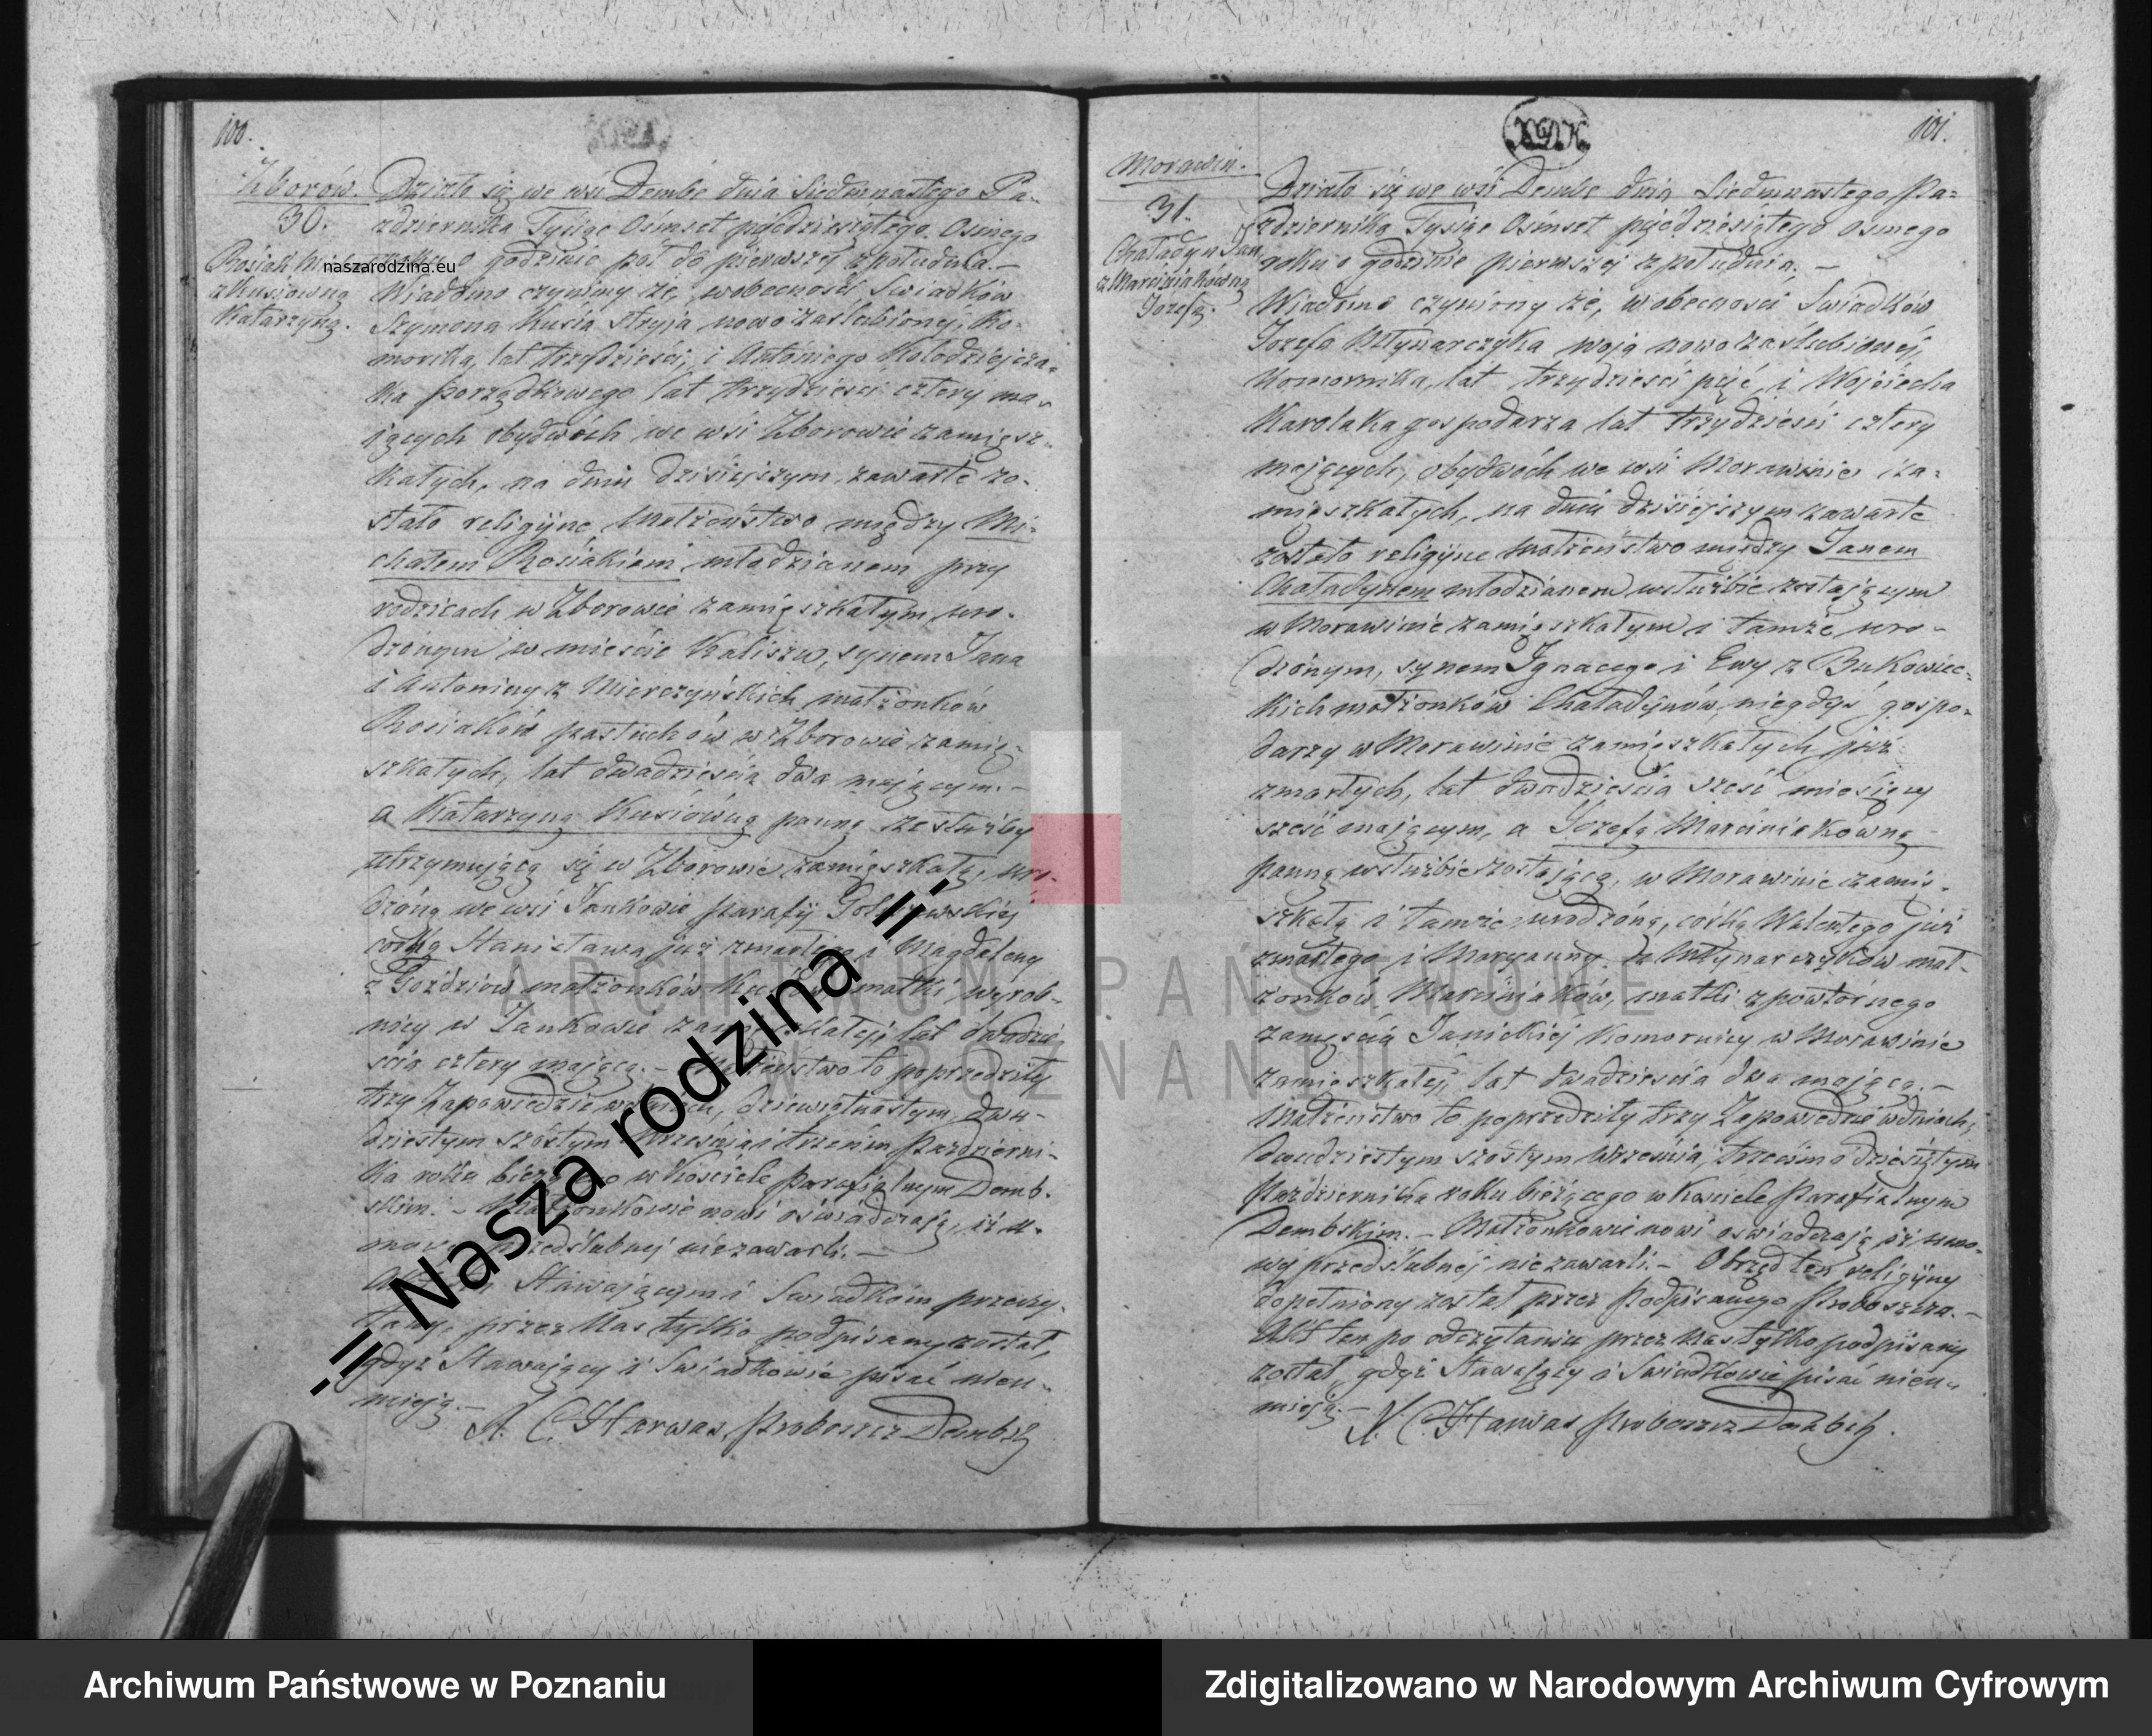 100.
Zborów.
30.
Rosiak
z Kusiówną
Katarzyną.
naszarodzina.eu
Działo się we wsi Dembe dnia Siedmnastego Pa-
zdziernika Tysiąc Osimset pięćdziesiątego Osmego
roku o godzinie pół do pierwszej z południa.—
Wiadomo czynimy że, w obecności Swiadków
Szymona Kusia stryja nowo zaślubionej, Ko-
mornika, lat trzydzieści, i Antoniego Kołodziejcza-
ka porządkowego lat trzydzieści cztery ma-
jących obydwóch we wsi Zborowie zamięsz-
kałych, na dniu dzisiejszym, zawarte zo-
stało religijne Małżeństwo między Mi-
chałem Rosiakiem młodzianem przy
rodzicach w Zborowie zamięszkałym, uro-
dzonym w mieście Kaliszu, synem Jana
i Antoniny z Mierczyńskich małżonków
Rosiaków pastuchów w Zborowie zamię-
szkałych, lat dwadzieścia dwa mającym.—
a Katarzyną Kusiówną panną ze służby
utrzymującą się w Zborowie zamięszkałą, uro-
dzoną we wsi Jankowie parafij
córką Stanisława już zmarłego i Magdaleny
z Goździów małżonków matki wyrob-
nicy w Jankowie lat dwadzie-
ścia cztery mającą.— Małżeństwo to poprzedziły
trzy Zapowiedzie w dniach, dziewiętnastym, dwu-
dziestym szóstym Września i trzecim Pazdzierni-
ka roku w Kościele parafialnym Demb-
skim.— Małżonkowie nowi oświadczają, iż u-
mowy przedślubnej niezawarli.—
Stawającymi Swiadkom przeczy-
tany, przez Nas tylko podpisany został,
gdyż Stawający i Swiadkowie pisać nieu-
mieją.—
X. C. Harwas, Proboszcz Dembski
101.
Morawin.
31.
Chaładyn Jan
z Marciniakówną
Jozefą.
Działo się we wsi Dembe dnia Siedmnastego Pa-
zdziernika Tysiąc Osimset pięćdziesiątego osmego
roku o godzinie pierwszej z południa.—
Wiadomo czynimy że, w obecności Swiadków
Jozefa Młynarczyka woja nowo zaślubionej,
Komornika, lat trzydzieści pięć, i Wojciecha
Karolaka gospodarza lat trzydzieści cztery
mających, obydwóch we wsi Morawinie za-
mięszkałych, na dniu dzisiejszym zawarte
zostało religijne Małżeństwo między Janem
Chaładynem młodzianem w służbie zostającym
w Morawinie zamięszkałym i tamże uro-
dzonym, synem Ignacego i Ewy z Bukowiec-
kich małżonków Chaładynów, niegdyś gospo-
darzy w Morawinie zamięszkałych już
zmarłych, lat dwadzieścia sześć miesięcy
sześć mającym, a Józefą Marciniakówną
panną w służbie zostającą, w Morawinie zamię-
szkałą i tamże urodzoną, córką Walentego już
zmarłego i Maryanny z Młynarczyków mał-
żonków Marciniaków, matki z powtórnego
zamęścia Janickiej Komornicy w Morawinie
zamieszkałej, lat dwadzieścia dwa mającą.—
Małżeństwo to poprzedziły trzy Zapowiedzie w dniach,
dwudziestym szóstym Września, trzecim dziesiątym
Pazdziernika roku bieżącego w Kościele Parafialnym
Dembskim.— Małżonkowie nowi oświadczają iż umo-
wy przedślubnej niezawarli.— Obrzęd ten religijny
dopełniony został przez podpisanego Proboszcza.—
Akt ten po odczytaniu przez Nas tylko podpisany
został, gdyż Stawający i Swiadkowie pisać nieu-
mieją.—
X. C. Harwas Proboszcz Dembski.
.:: Nasza rodzina ::.
ARCHIWUM PAŃSTWOWE
W POZNANIU
Archiwum Państwowe w Poznaniu
Zdigitalizowano w Narodowym Archiwum Cyfrowym